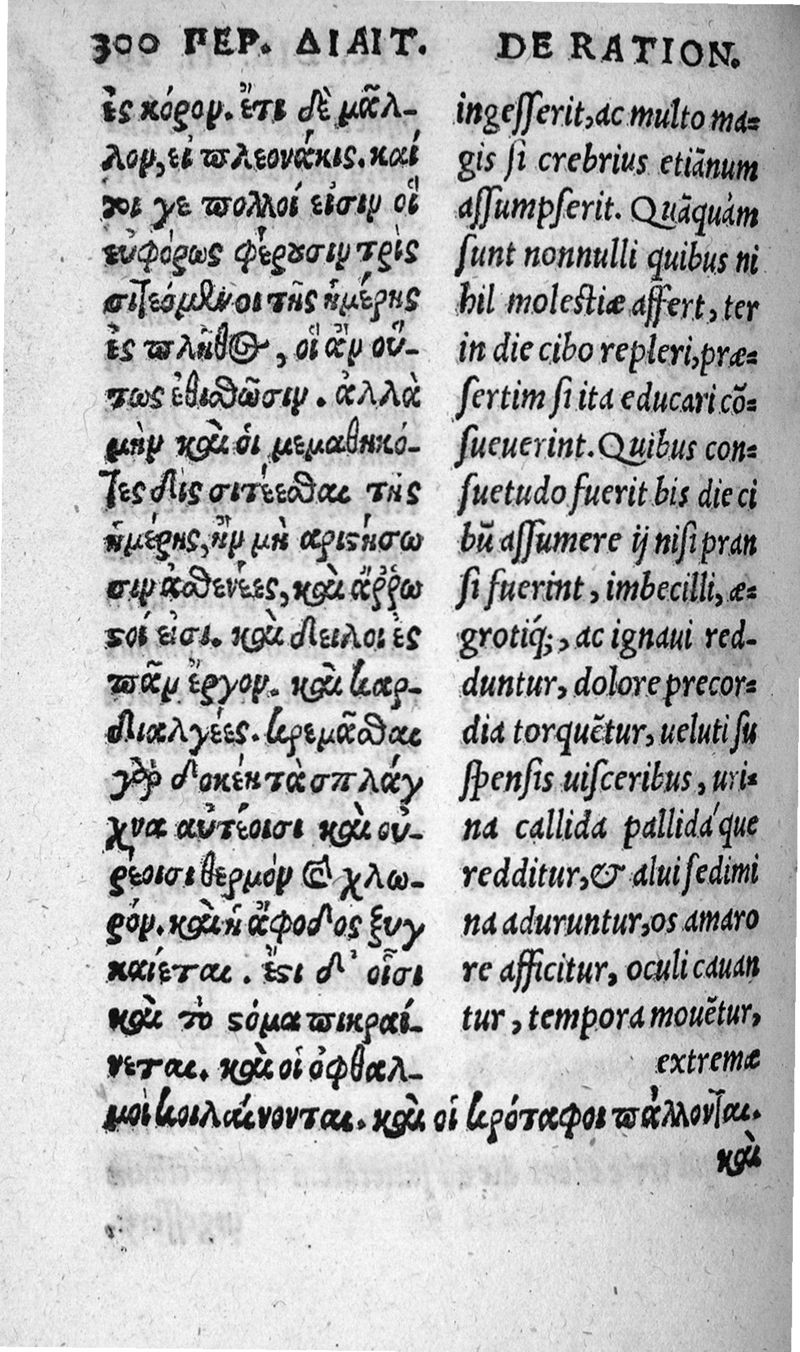 300 ΠΕΡ. ΔΙΑΙΤ. DE RATION.
ἐς κόρον. ἔτι δὲ μᾶλ-
λον, εἰ πλεονάκις. καί
τοι γε πολλοί εἰσιν οἳ
εὐφόρως φέρουσιν τρὶς
σιτεόμενοι τῆς ἡμέρης
ἐς πλῆθος, οἳ ἂν οὕ-
τως ἐθισθῶσιν. ἀλλὰ
μὴν καὶ οἱ μεμαθηκό-
τες δὶς σιτέεσθαι τῆς
ἡμέρης, ἢν μὴ αριστήσω
σιν ἀσθενέες, καὶ ἄῤῥω
στοί εἰσι. καὶ δειλοι ἐς
πᾶν ἔργον. καὶ καρ-
διαλγέες. κρεμᾶσθαι
γὰρ δοκέη τὰ σπλάγ
χνα αὐτέοισι καὶ οὐ-
ρέοισι θερμὸν & χλω-
ρόν. καὶ ἡ ἄφοδος ξυγ
καίεται. ἔστι δ' οἷσι
καὶ τὸ στόμα πικραί-
νεται. καὶ οἱ ὀφθαλ-
μοὶ κοιλαίνονται. καὶ οἱ κρόταφοι πάλλονται.
καὶ
ingesserit, ac multo ma=
gis si crebrius etiānum
assumpserit. Quāquàm
sunt nonnulli quibus ni
hil molestiæ affert, ter
in die cibo repleri, præ=
sertim si ita educari cō=
sueuerint. Quibus con=
suetudo fuerit bis die ci
bū assumere ij nisi pran
si fuerint, imbecilli, æ=
grotiq́;, ac ignaui red-
duntur, dolore precor=
dia torquētur, ueluti su
spensis uisceribus, uri=
na callida pallidá que
redditur, & alui sedimi
na aduruntur, os amaro
re afficitur, oculi cauan
tur, tempora mouētur,
extremæ